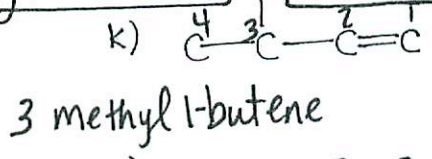 k) C4—3C—C2=C1
3 methyl 1-butene